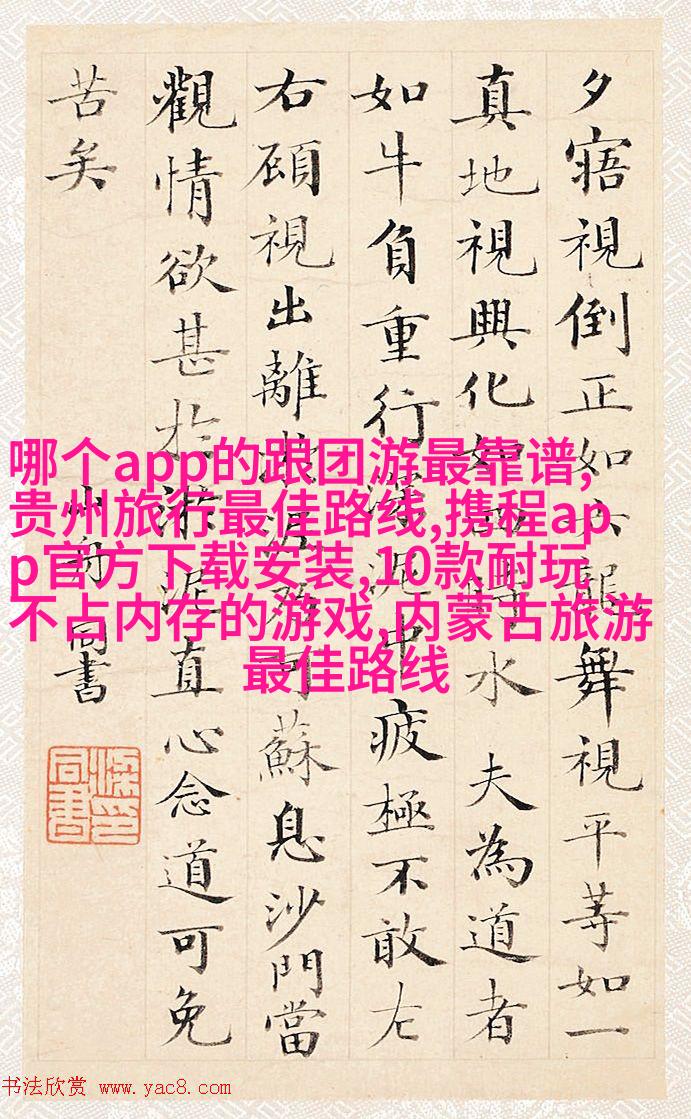 夕寤視倒正如六龍舞視平等如一
真地視興化如四時水 夫為道者
如牛負重行深泥中疲極不敢左
右顧視出離淤泥乃可蘇息沙門當
觀情欲甚於淤泥直心念道可免
苦矣
山舟同書
哪个app的跟团游最靠谱,
贵州旅行最佳路线,携程ap
p官方下载安装,10款耐玩
不占内存的游戏,内蒙古旅游
最佳路线
书法欣赏 www.yac8.com